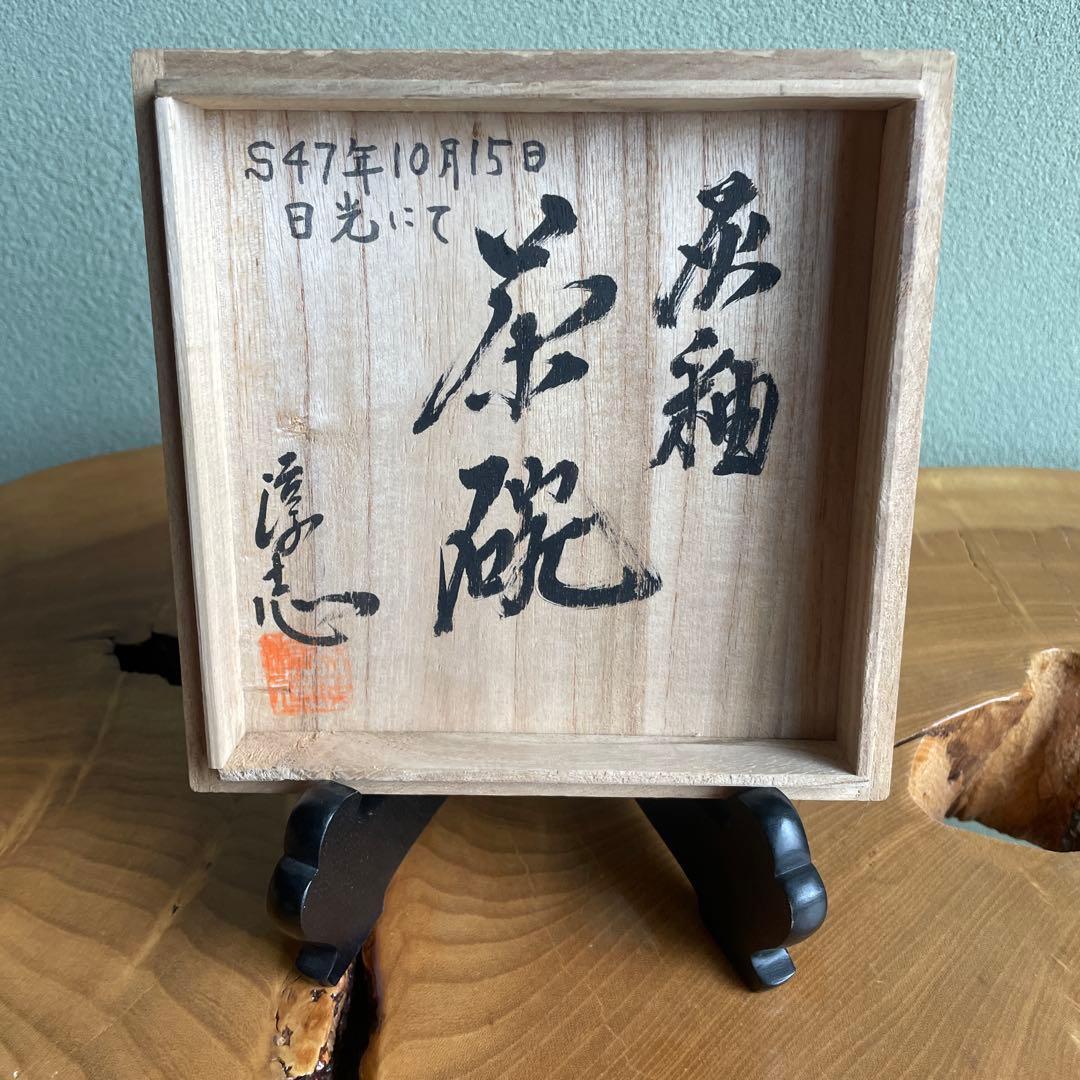 S47年10月15日
日光にて
灰釉
茶碗
淳志